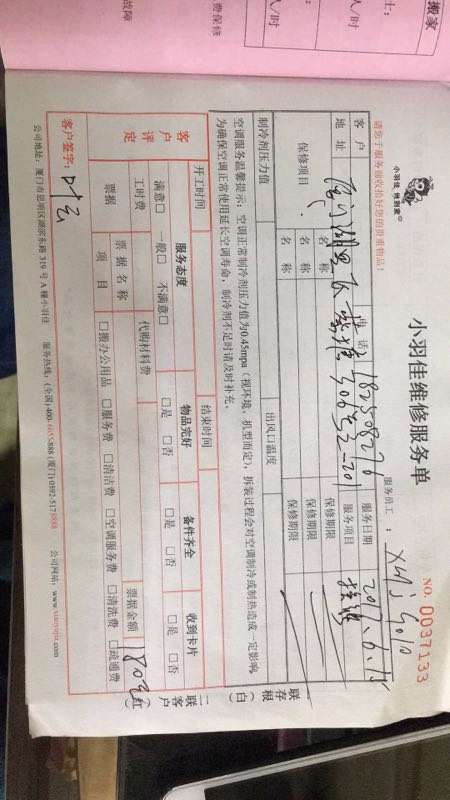 搬家
士：
人/时
人/时
费保修
故障
小羽佳 快到家
小羽佳维修服务单
NO. 0037133
请您于服务前收拾好您的贵重物品！
服务员工：
客户
电话
服务日期 2017.6.15
地址
服务项目
保修项目
名称
名称
名称
保修期限
保修期限
保修期限
制冷剂压力值
出风口温度
空调服务温馨提示：空调正常制冷剂压力值为0.45mpa（视环境、机型而定），拆装过程会对空调制冷或制热造成一定影响，
为确保空调正常使用延长空调寿命，制冷剂不足时请及时补充。
存根（白）
联
二联客户（红）
开工时间
结束时间
客户评定
服务态度
物品完好
备件齐全
收到卡片
满意□ 一般□ 不满意□
□是 □否
□是 □否
□是 □否
工时费
代购材料费
票据金额 180元
票据
票据名称
项目
□搬办公用品 □服务费 □清洁费 □空调服务费 □清洗费 □疏通费
客户签字：
公司地址：厦门市思明区湖滨东路319号A幢小羽佳
服务热线：(全国)400-6655-888 (厦门)0592-5178888
公司网站：www.xiaoyujia.com